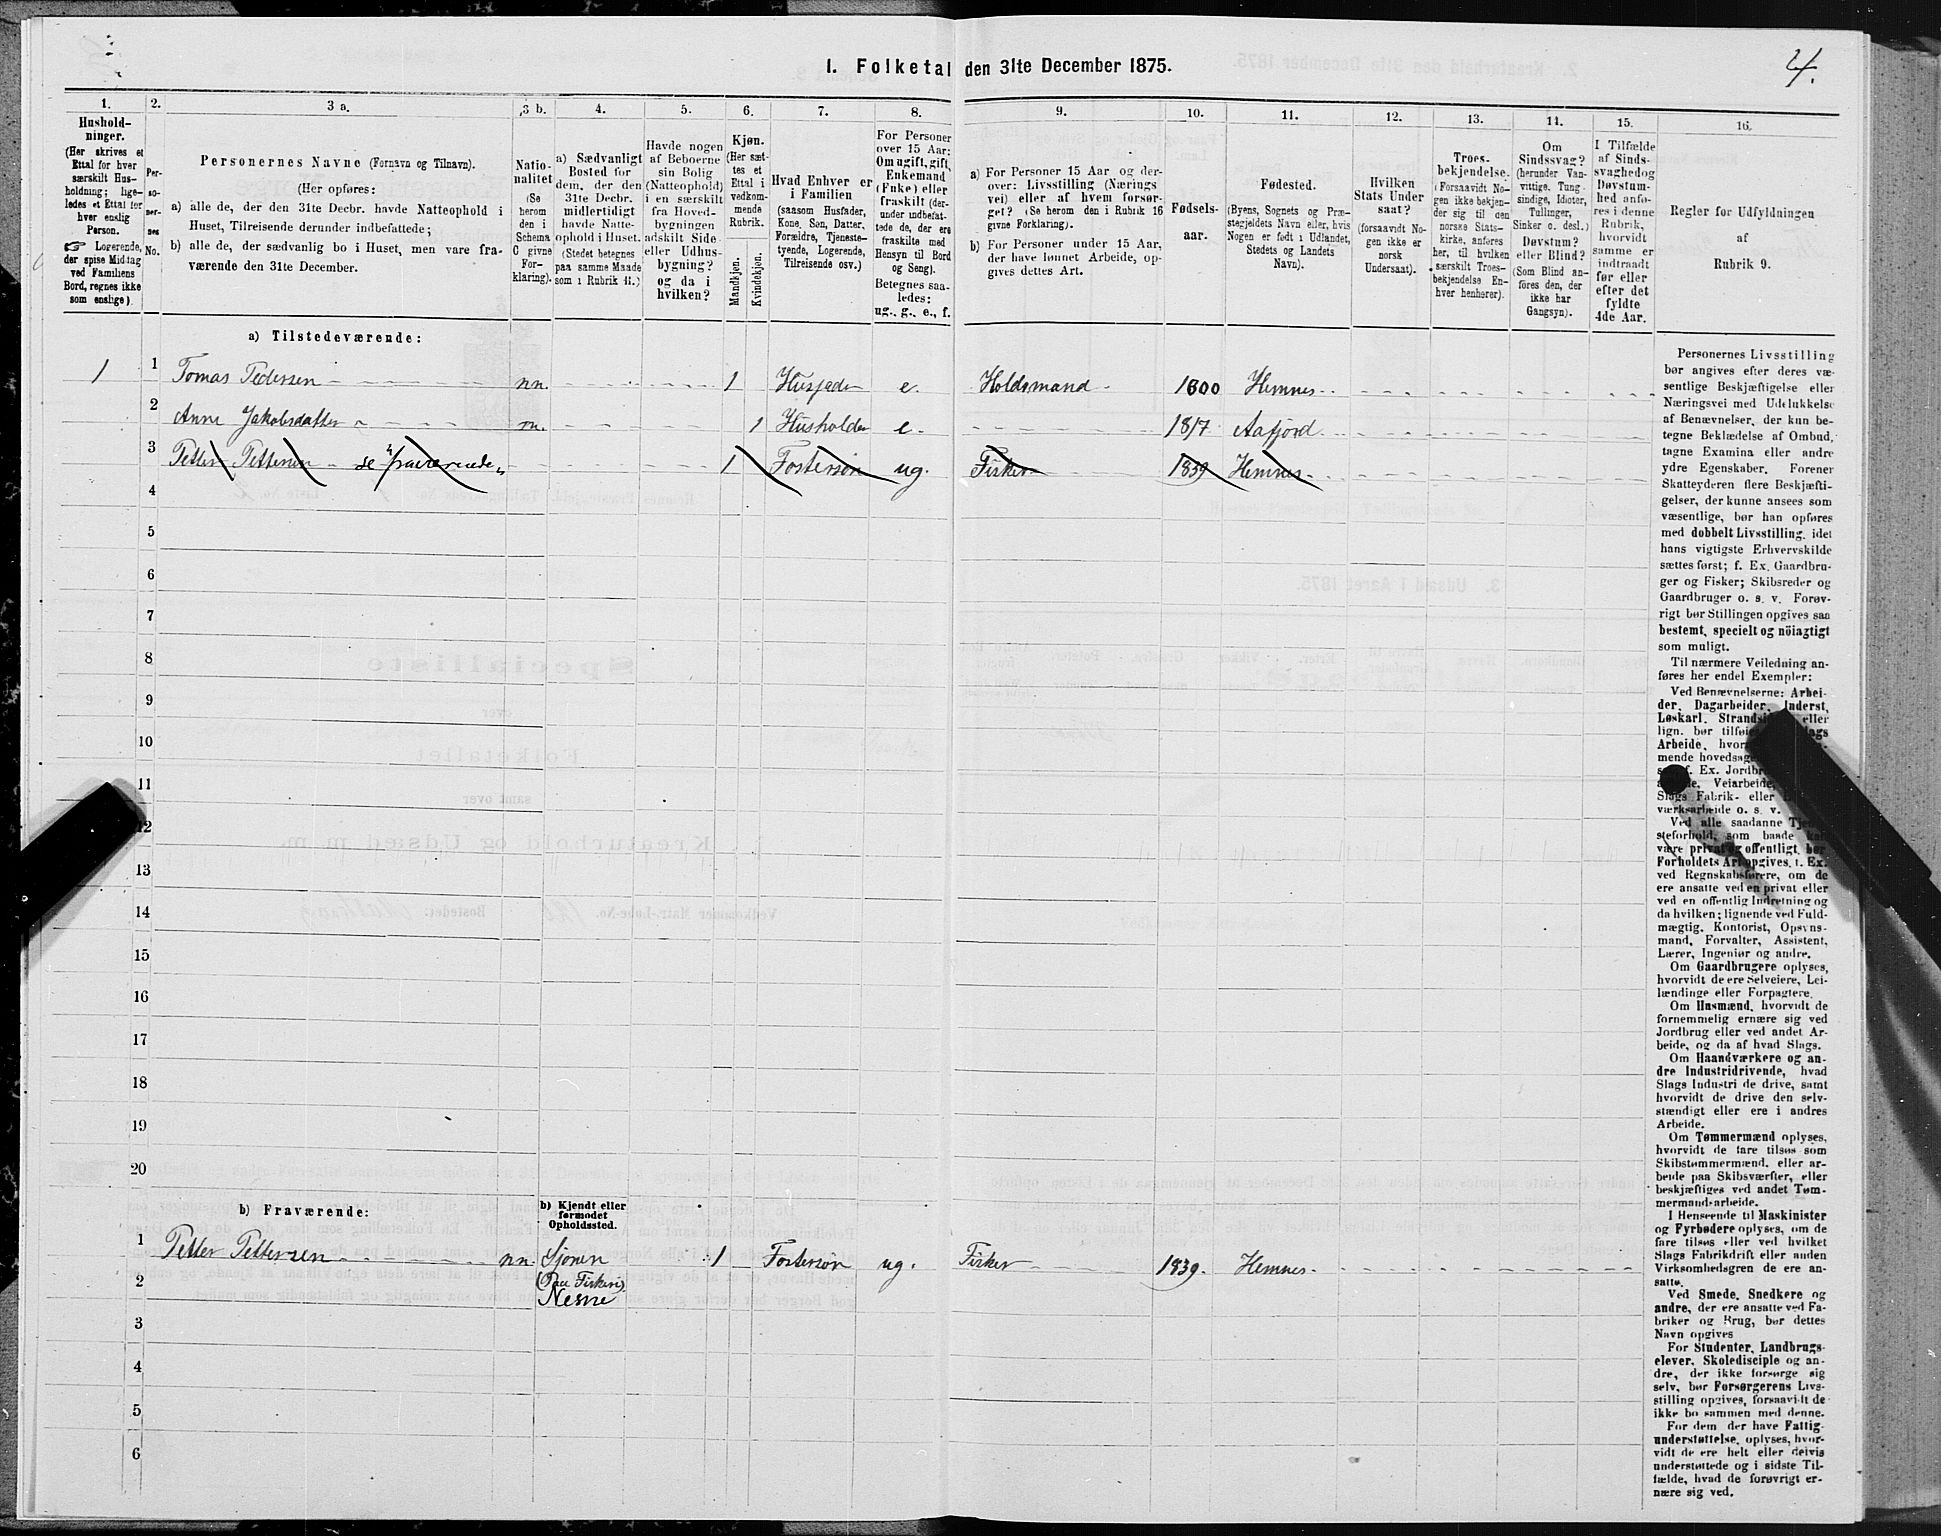 4.
I. Folketal den 31te December 1875.
1. 2. 3 a. 3 b. 4. 5. 6. 7. 8. 9. 10. 11. 12. 13. 14. 15. 16.
Hushold-
ninger.
(Her skrives et
Ettal for hver
særskilt Hus-
holdning; lige-
ledes et Ettal for
hver enslig
Person.
☞ Logerende,
der spise Middag
ved Familiens
Bord, regnes ikke
som enslige).
Per-
so-
ner-
nes
No.
Personernes Navne (Fornavn og Tilnavn).
(Her opføres:
a) alle de, der den 31te Decbr. havde Natteophold i
Huset, Tilreisende derunder indbefattede;
b) alle de, der sædvanlig bo i Huset, men vare fra-
værende den 31te December.
Natio-
nalitet
(Se
herom
den i
Schema
C givne
For-
klaring).
a) Sædvanligt
Bosted for
dem, der den
31te Decbr.
midlertidigt
havde Natte-
ophold i Huset.
(Stedet betegnes
paa samme Maade
som i Rubrik 11.)
Havde nogen
af Beboerne
sin Bolig
(Natteophold)
i en særskilt
fra Hoved-
bygningen
adskilt Side-
eller Udhus-
bygning?
og da i
hvilken?
Kjøn.
(Her sæt-
tes et
Ettal i
vedkom-
mende
Rubrik.
Mandkjøn.
Kvindekjøn.
Hvad Enhver er
i Familien
(saasom Husfader,
Kone, Søn, Datter,
Forældre, Tjeneste-
tyende, Logerende,
Tilreisende osv.)
For Personer
over 15 Aar:
Om ugift, gift,
Enkemand
(Enke) eller
fraskilt (der-
under indbefat-
tede de, der ere
fraskilte med
Hensyn til Bord
og Seng).
Betegnes saa-
ledes:
ug., g., e., f.
a) For Personer 15 Aar og der-
over: Livsstilling (Nærings-
vei) eller af hvem forsør-
get? (Se herom den i Rubrik 16
givne Forklaring).
b) For Personer under 15 Aar,
der have lønnet Arbeide, op-
gives dettes Art.
Fødsels-
aar.
Fødested.
(Byens, Sognets og Præ-
stegjeldets Navn eller, hvis
Nogen er født i Udlandet,
Stedets og Landets
Navn).
Hvilken
Stats Under
saat?
(forsaavidt No-
gen ikke er
norsk
Undersaat).
Troes-
bekjendelse.
(Forsaavidt No-
gen ikke bekjen-
der sig til den
norske Stats-
kirke, anføres
her, til hvilken
særskilt Troes-
bekjendelse En-
hver henhører).
Om
Sindssvag?
(herunder Van-
vittige, Tung-
sindige, Idioter,
Tullinger,
Sinker o. desl.)
Døvstum?
eller Blind?
(Som Blind an-
føres den, der
ikke har
Gangsyn).
I Tilfælde
af Sinds-
svaghed og
Døvstum-
hed anfø-
res i denne
Rubrik,
hvorvidt
samme er
indtraadt
før eller
efter det
fyldte
4de Aar.
Regler for Udfyldningen
af
Rubrik 9.
a) Tilstedeværende:
1 1 Tomas Pedersen nn. 1 Husfader e. Holdsmand 1800 Hemnes
2 Anne Jakobsdatter n. 1 Husholder e. 1817 Aafjord
3 Petter Pettersen se "fraværende" 1 Fostersøn ug. Fisker 1839 Hemnes
4
5
6
7
8
9
10
11
12
13
14
15
16
17
18
19
20
b) Fraværende:
b) Kjendt eller
formodet
Opholdssted.
1 Petter Pettersen nn. Sjonen 1 Fostersøn ug. Fisker 1839. Hemnes
2 (Paa Fiskeri)
Nesne
3
4
5
6
Personernes Livsstilling
bør angives efter deres væ-
sentlige Beskjæftigelse eller
Næringsvei med Udelukkelse
af Benævnelser, der kun be-
tegne Beklædelse af Ombud,
tagne Examina eller andre
ydre Egenskaber. Forener
Skatteyderen flere Beskjæfti-
gelser, der kunne ansees som
væsentlige, bør han opføres
med dobbelt Livsstilling, idet
hans vigtigste Erhvervskilde
sættes først; f. Ex. Gaardbru-
ger og Fisker; Skibsreder og
Gaardbruger o. s. v. Forøv-
rigt bør Stillingen opgives saa
bestemt, specielt og nöiagtigt
som muligt.
Til nærmere Veiledning an-
føres her endel Exempler:
Ved Benævnelserne: Arbei-
der, Dagarbeider, Inderst,
Løskarl, eller
lign. bør
Arbeide,
mende
Ex.
Veiarbeide,
Slags Fabrik- eller
værksarbeide o. s. v.
Ved alle saadanne
steforhold, som baade
være privat og offentligt, bør
Forholdets Art opgives, f. Ex.
ved Regnskabsførere, om de
ere ansatte ved en privat eller
ved en offentlig Indretning og
da hvilken; lignende ved Fuld-
mægtig, Kontorist, Opsyns-
mand, Forvalter, Assistent,
Lærer, Ingeniør og andre.
Om Gaardbrugere oplyses,
hvorvidt de ere Selveiere, Lei-
lændinge eller Forpagtere.
Om Husmænd, hvorvidt de
fornemmelig ernære sig ved
Jordbrug eller ved andet Ar-
beide, og da af hvad Slags.
Om Haandværkere og an-
dre Industridrivende, hvad
Slags Industri de drive, samt
hvorvidt de drive den selv-
stændigt eller ere i andres
Arbeide.
Om Tømmermænd oplyses,
hvorvidt de fare tilsøs som
Skibstømmermænd, eller ar-
beide paa Skibsværfter, eller
beskjæftiges ved andet Tøm-
mermandsarbeide.
I Henseende til Maskinister
og Fyrbødere oplyses, om de
fare tilsøs eller ved hvilket
Slags Fabrikdrift eller anden
Virksomhedsgren de ere an-
satte.
Ved Smede, Snedkere og
andre, der ere ansatte ved Fa-
briker og Brug, bør dettes
Navn opgives
For Studenter, Landbrugs-
elever, Skoledisciple og an-
dre, der ikke forsørge sig
selv, bør Forsørgerens Livs-
stilling opgives, forsaavidt de
ikke bo sammen med denne.
For dem, der have Fattig-
understøttelse, oplyses, hvor-
vidt de ere helt eller delvis
understøttede og i sidste Til-
fælde, hvad de forøvrigt er-
nære sig ved.